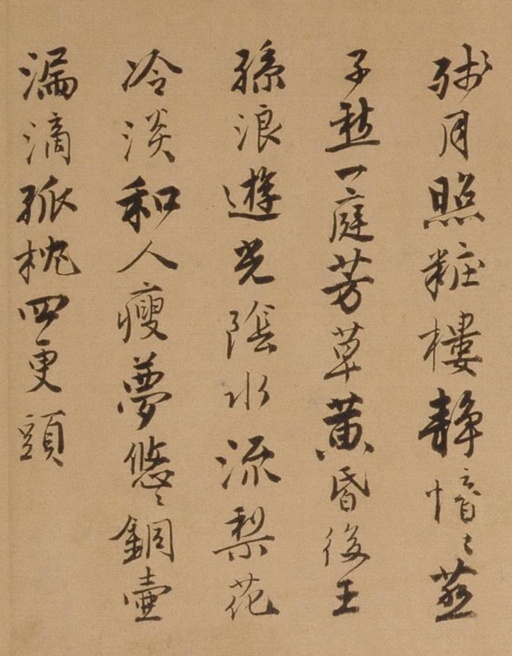 殘月照粧樓靜愔〻燕
子愁一庭芳草黃昏後王
孫浪遊光陰水流梨花
冷淡和人瘦夢悠〻銅壺
漏滴孤枕四更頭